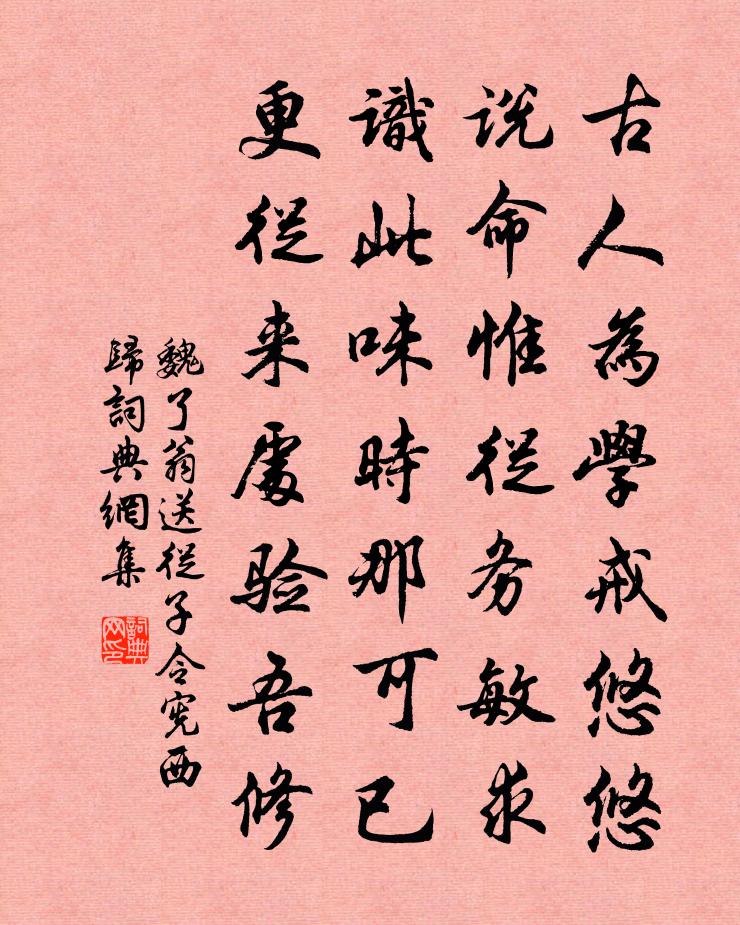 古人為學戒悠悠
説命惟從务敏求
識此味時那可已
更從来處验吾修
魏了翁送從子令宪西
歸詞典網集
詞典
网印